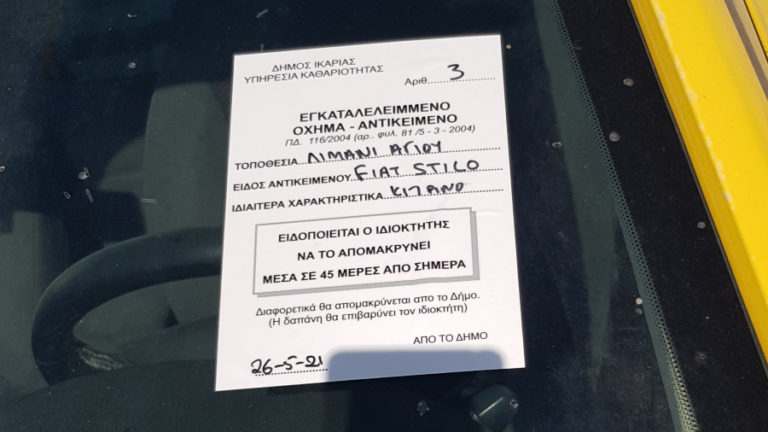 ΔΗΜΟΣ ΙΚΑΡΙΑΣ
ΥΠΗΡΕΣΙΑ ΚΑΘΑΡΙΟΤΗΤΑΣ
Αριθ. 3
ΕΓΚΑΤΑΛΕΛΕΙΜΜΕΝΟ
ΟΧΗΜΑ - ΑΝΤΙΚΕΙΜΕΝΟ
ΠΔ. 116/2004 (αρ., φυλ. 81 /5 - 3 - 2004)
ΤΟΠΟΘΕΣΙΑ ΛΙΜΑΝΙ ΑΓΙΟΥ
ΕΙΔΟΣ ΑΝΤΙΚΕΙΜΕΝΟΥ FIAT STILO
ΙΔΙΑΙΤΕΡΑ ΧΑΡΑΚΤΗΡΙΣΤΙΚΑ ΚΙΤΡΑΝΟ
ΕΙΔΟΠΟΙΕΙΤΑΙ Ο ΙΔΙΟΚΤΗΤΗΣ
ΝΑ ΤΟ ΑΠΟΜΑΚΡΥΝΕΙ
ΜΕΣΑ ΣΕ 45 ΜΕΡΕΣ ΑΠΟ ΣΗΜΕΡΑ
Διαφορετικά θα απομακρύνεται απο το Δήμο.
(Η δαπάνη θα επιβαρύνει τον ιδιοκτήτη)
ΑΠΟ ΤΟ ΔΗΜΟ
26-5-21